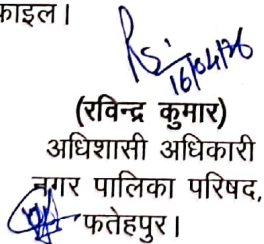 फाइल।
16/04/26
(रविन्द्र कुमार)
अधिशासी अधिकारी
नगर पालिका परिषद,
फतेहपुर।